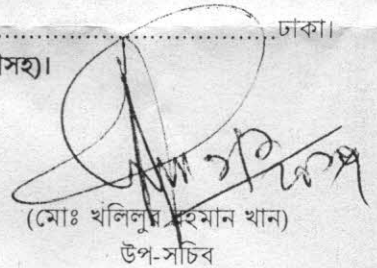 ........................................ঢাকা।
সহ)।
(মোঃ খলিলুর রহমান খান)
উপ-সচিব